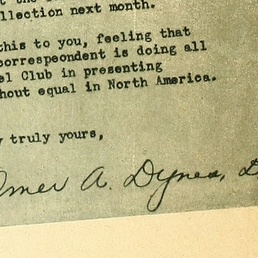 llection next month.
this to you, feeling that
correspondent is doing all
el Club in presenting
hout equal in North America.
truly yours,
Omer A. Dynes, D